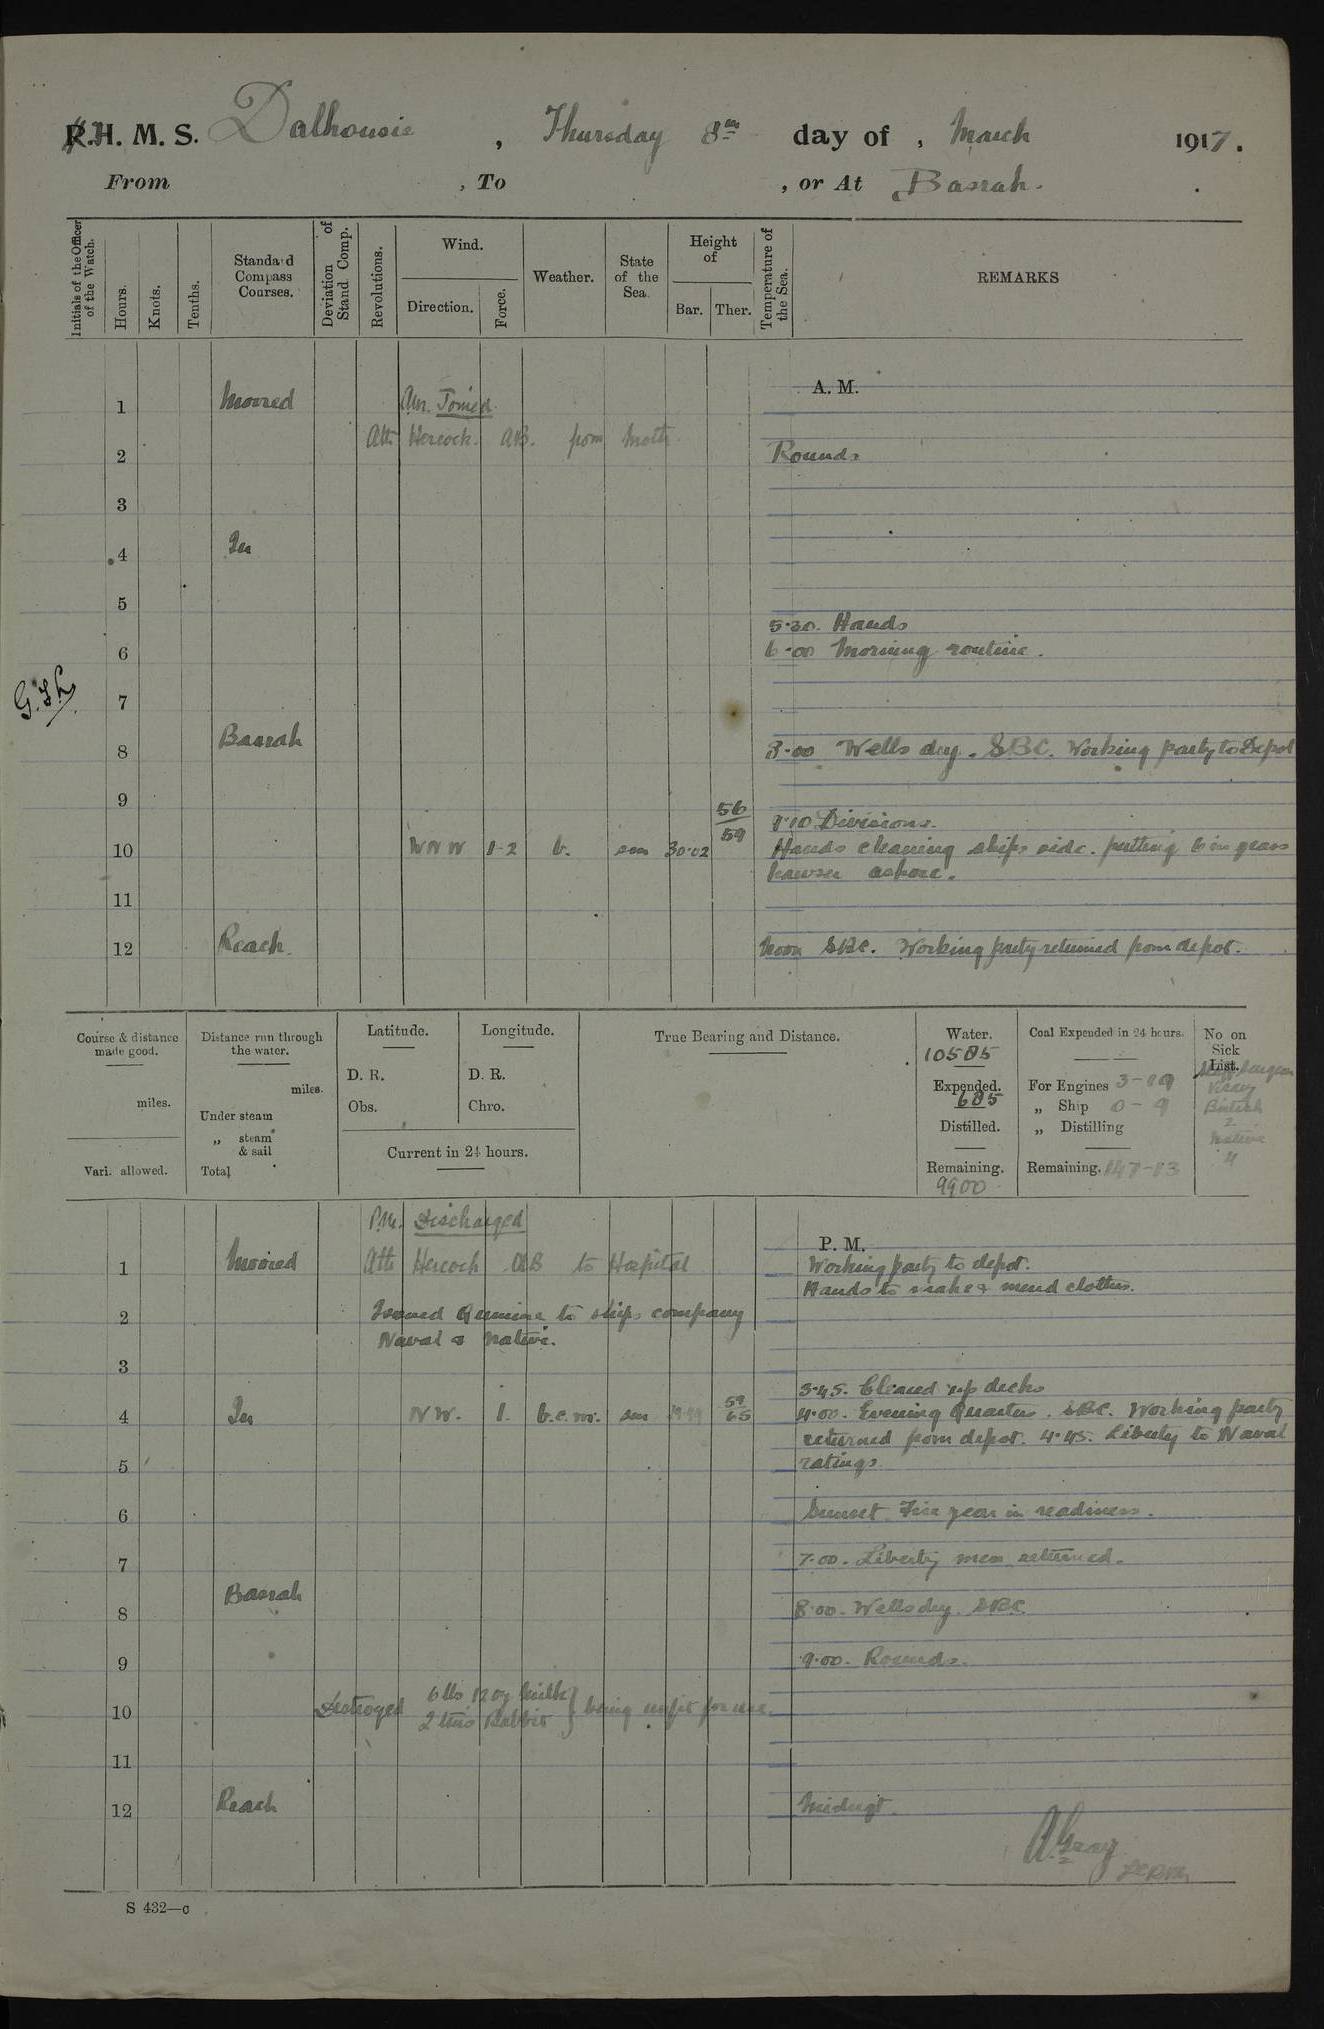 R.H. M. S. Dalhousie, Thursday 8th day of, March 1917.
From , To , or At Basrah.
Initials of the Officer of the Watch.
Hours.
Knots.
Tenths.
Standard Compass Courses.
Deviation of Stand. Comp.
Revolutions.
Wind.
Direction.
Force.
Weather.
State of the Sea.
Height of
Bar.
Ther.
Temperature of the Sea.
REMARKS
A. M.
1 Moored Am. Joined
Atti Hercock. AB. from Moth
2 Rounds
3
4 In
5
5.30. Hands
6 6.00 Morning routine.
7
8 Basrah 8.00 Wells dry. SBC. Working party to Depot
9
56
9.10 Divisions.
10 WNW 1-2 b. sm 30.02 59 Hands cleaning ships side. putting 6 in grass
hawser ashore.
11
12 Reach. Noon SBC. Working party returned from depot.
Course & distance made good.
miles.
Vari. allowed.
Distance run through the water.
miles.
Under steam
„ steam & sail
Total
Latitude.
D. R.
Obs.
Longitude.
D. R.
Chro.
Current in 24 hours.
True Bearing and Distance.
Water.
10585
Expended.
685
Distilled.
Remaining.
9900
Coal Expended in 24 hours.
For Engines 3-19
„ Ship 0-9
„ Distilling
Remaining. 147-13
No on Sick List.
Staff Surgeon
British
2
Native
4
P.M. Discharged
P. M.
1 Moored Atti Hercock AB to Hospital Working party to depot.
Hands to make & mend clothes.
2 Issued Quinine to ships company
Naval & Native.
3
3.45. Cleared up decks
4 In NW. 1. b.c.m. sm 59 65 4.00. Evening Quarters. SBC. Working party
returned from depot. 4.45. Liberty to Naval
5 ratings.
6 Sunset Fire gear in readiness.
7 7.00. Liberty men returned.
Basrah
8 8.00. Wells dry. SBC.
9 9.00. Rounds.
10 Destroyed 6 lbs 12 oz Milk } being unfit for use.
2 tins Rabbit
11
12 Reach Midngt.
A. Gray
S 432—c